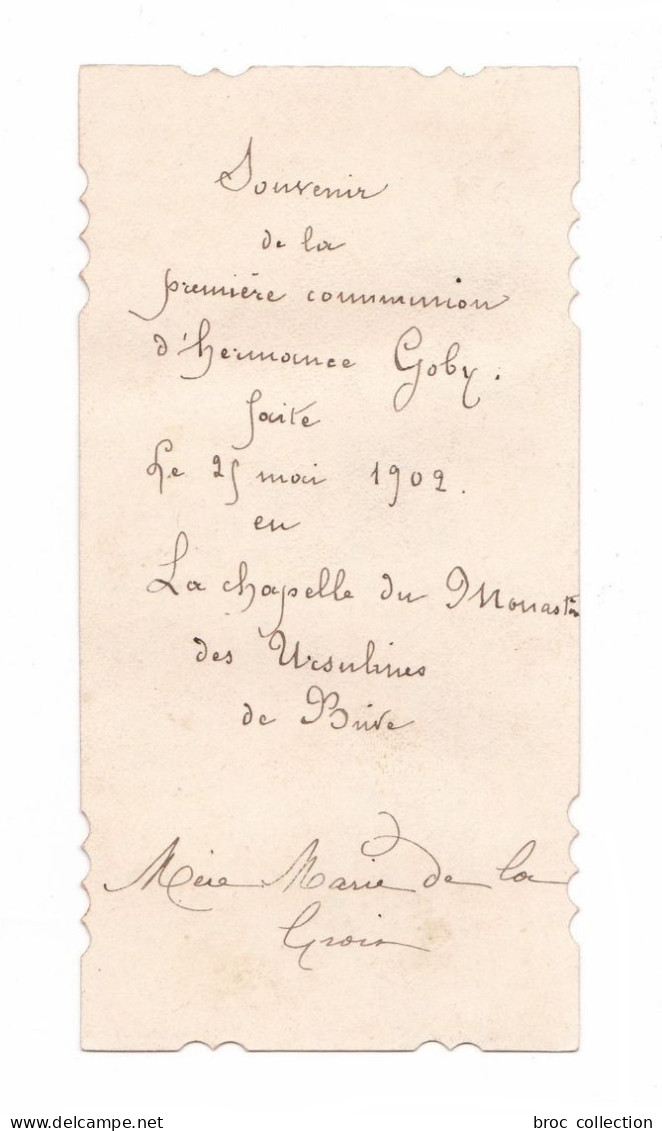 Souvenir
de la
première communion
d'hermance Goby.
faite
Le 25 mai 1902.
en
La chapelle du Monastère
des Ursulines
de Brive
Mère Marie de la
Croix
delcampe.net
broc collection